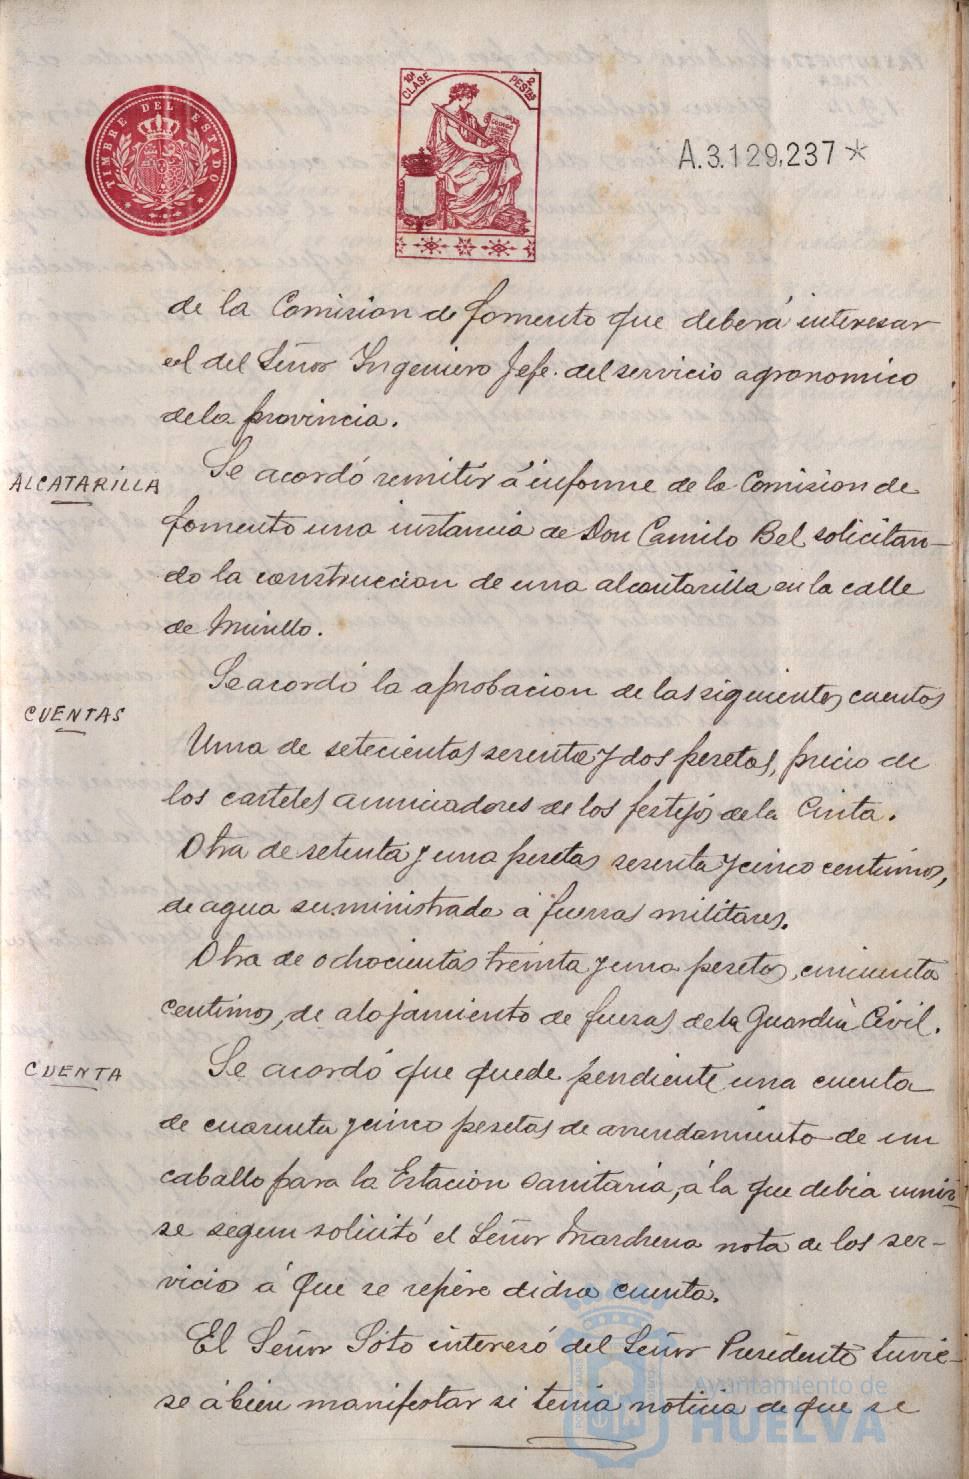 TIMBRE DEL ESTADO
10ª CLASE
2 PESTAS
A.3.129,237 *
de la Comision de fomento que deberá interesar
el del Señor Ingeniero Jefe del servicio agronomico
de la provincia.
ALCATARILLA
Se acordó remitir á informe de la Comision de
fomento una instancia de Don Camilo Bel solicitan-
do la construccion de una alcantarilla en la calle
de Murillo.
CUENTAS
Se acordó la aprobacion de las siguientes cuentas
Una de setecientas sesenta y dos pesetas, precio de
los carteles anunciadores de los festejos de la Cinta.
Otra de setenta y una pesetas sesenta y cinco centimos,
de agua suministrada á fuerzas militares.
Otra de ochocientas treinta y una pesetas, cincuenta
centimos, de alojamiento de fuerzas de la Guardia Civil.
CUENTA
Se acordó que quede pendiente una cuenta
de cuarenta y cinco pesetas de arrendamiento de un
caballo para la Estación Sanitaria, á la que debia unir-
se segun solicitó el Señor Marchena nota de los ser-
vicios á que se refiere dicha cuenta.
El Señor Soto interesó del Señor Presidente tuvie-
se á bien manifestar si tenia noticia de que se
Ayuntamiento de
HUELVA